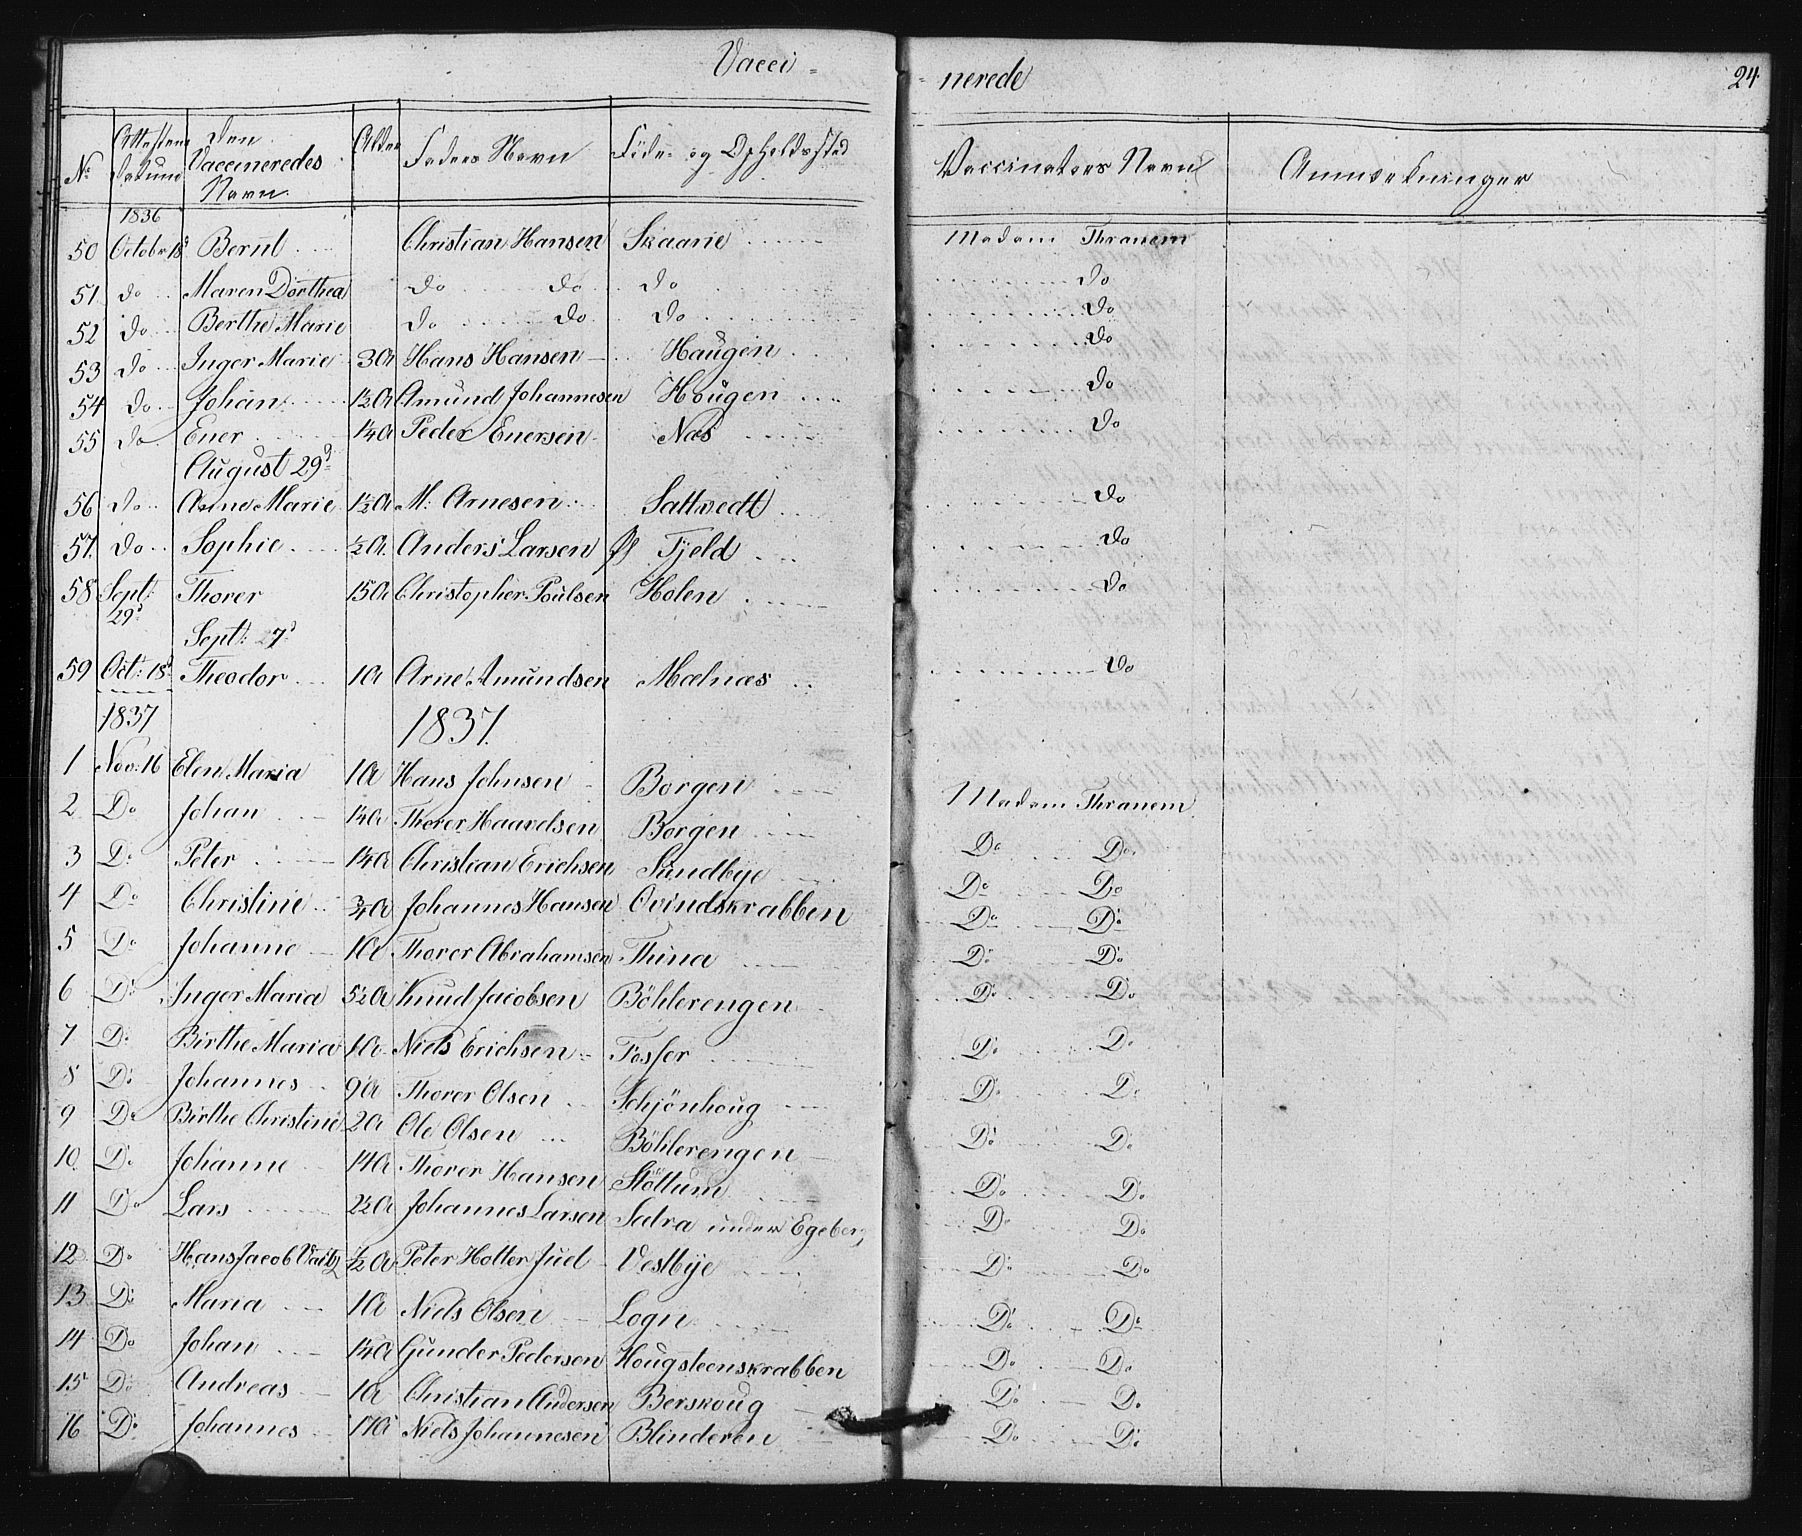 Vacci- nerede 24
No Attestens Datum Den Vaccineredes Navn Alder Faders Navn Føde- og Opholdssted Vaccinateurs Navn Anmærkninger
1836
50 Octobr 18d Bernt Christian Hansen Skaarie Madam Thranem
51 do Maren Dorthea do do do do
52 do Berthe Marie do do do do
53 do Inger Marie 3 A Hans Hansen Haugen do
54 do Johan 1½ A Amund Johannesen Hougen do
55 do Ener 1¼ A Peder Enersen Næs do
August 29d
56 do Anne Marie 1½ A M. Arnesen Sattvedt do
57 do Sophie ½ A Anders Larsen Fjeld do
58 Sept: 29d Thorer 15 A Christopher Poulsen Holen do
Sept: 27d
59 Oct: 18d Theodor 1 A Arne Amundsen Mælnæs do
1837 1837.
1 Nov: 16 Elen Maria 1 A Hans Johnsen Borgen Madam Thranem
2 Do Johan 1¼ A Thorer Haavelsen Borgen Do Do
3 Do Peter 1¼ A Christian Erichsen Sundbye Do Do
4 Do Christine ¾ A Johannes Hansen Ovindskrabben Do Do
5 Do Johanne 1 A Thorer Abrahamsen Thina Do Do
6 Do Inger Maria 5½ A Knud Jacobsen Böhlerengen Do Do
7 Do Birthe Maria 1 A Niels Erichsen Fosser Do Do
8 Do Johannes 9 A Thorer Olsen Schjönhoug Do Do
9 Do Birthe Christine 2 A Ole Olsen Böhlerengen Do Do
10 Do Johanne 14 A Thorer Hansen Stöttum Do Do
11 Do Lars 2½ A Johannes Larsen Satra under Egeberg Do Do
12 Do Hans Jacob ½ A Peter Holter Juel Vestbye Do Do
13 Do Maria 1 A Niels Olsen Logn Do Do
14 Do Johan 1¼ A Gunder Pedersen Hougsteenskrabben Do Do
15 Do Andreas 1 A Christian Andersen Berskoug Do Do
16 Do Johannes 17 A Niels Johannesen Blinderen Do Do